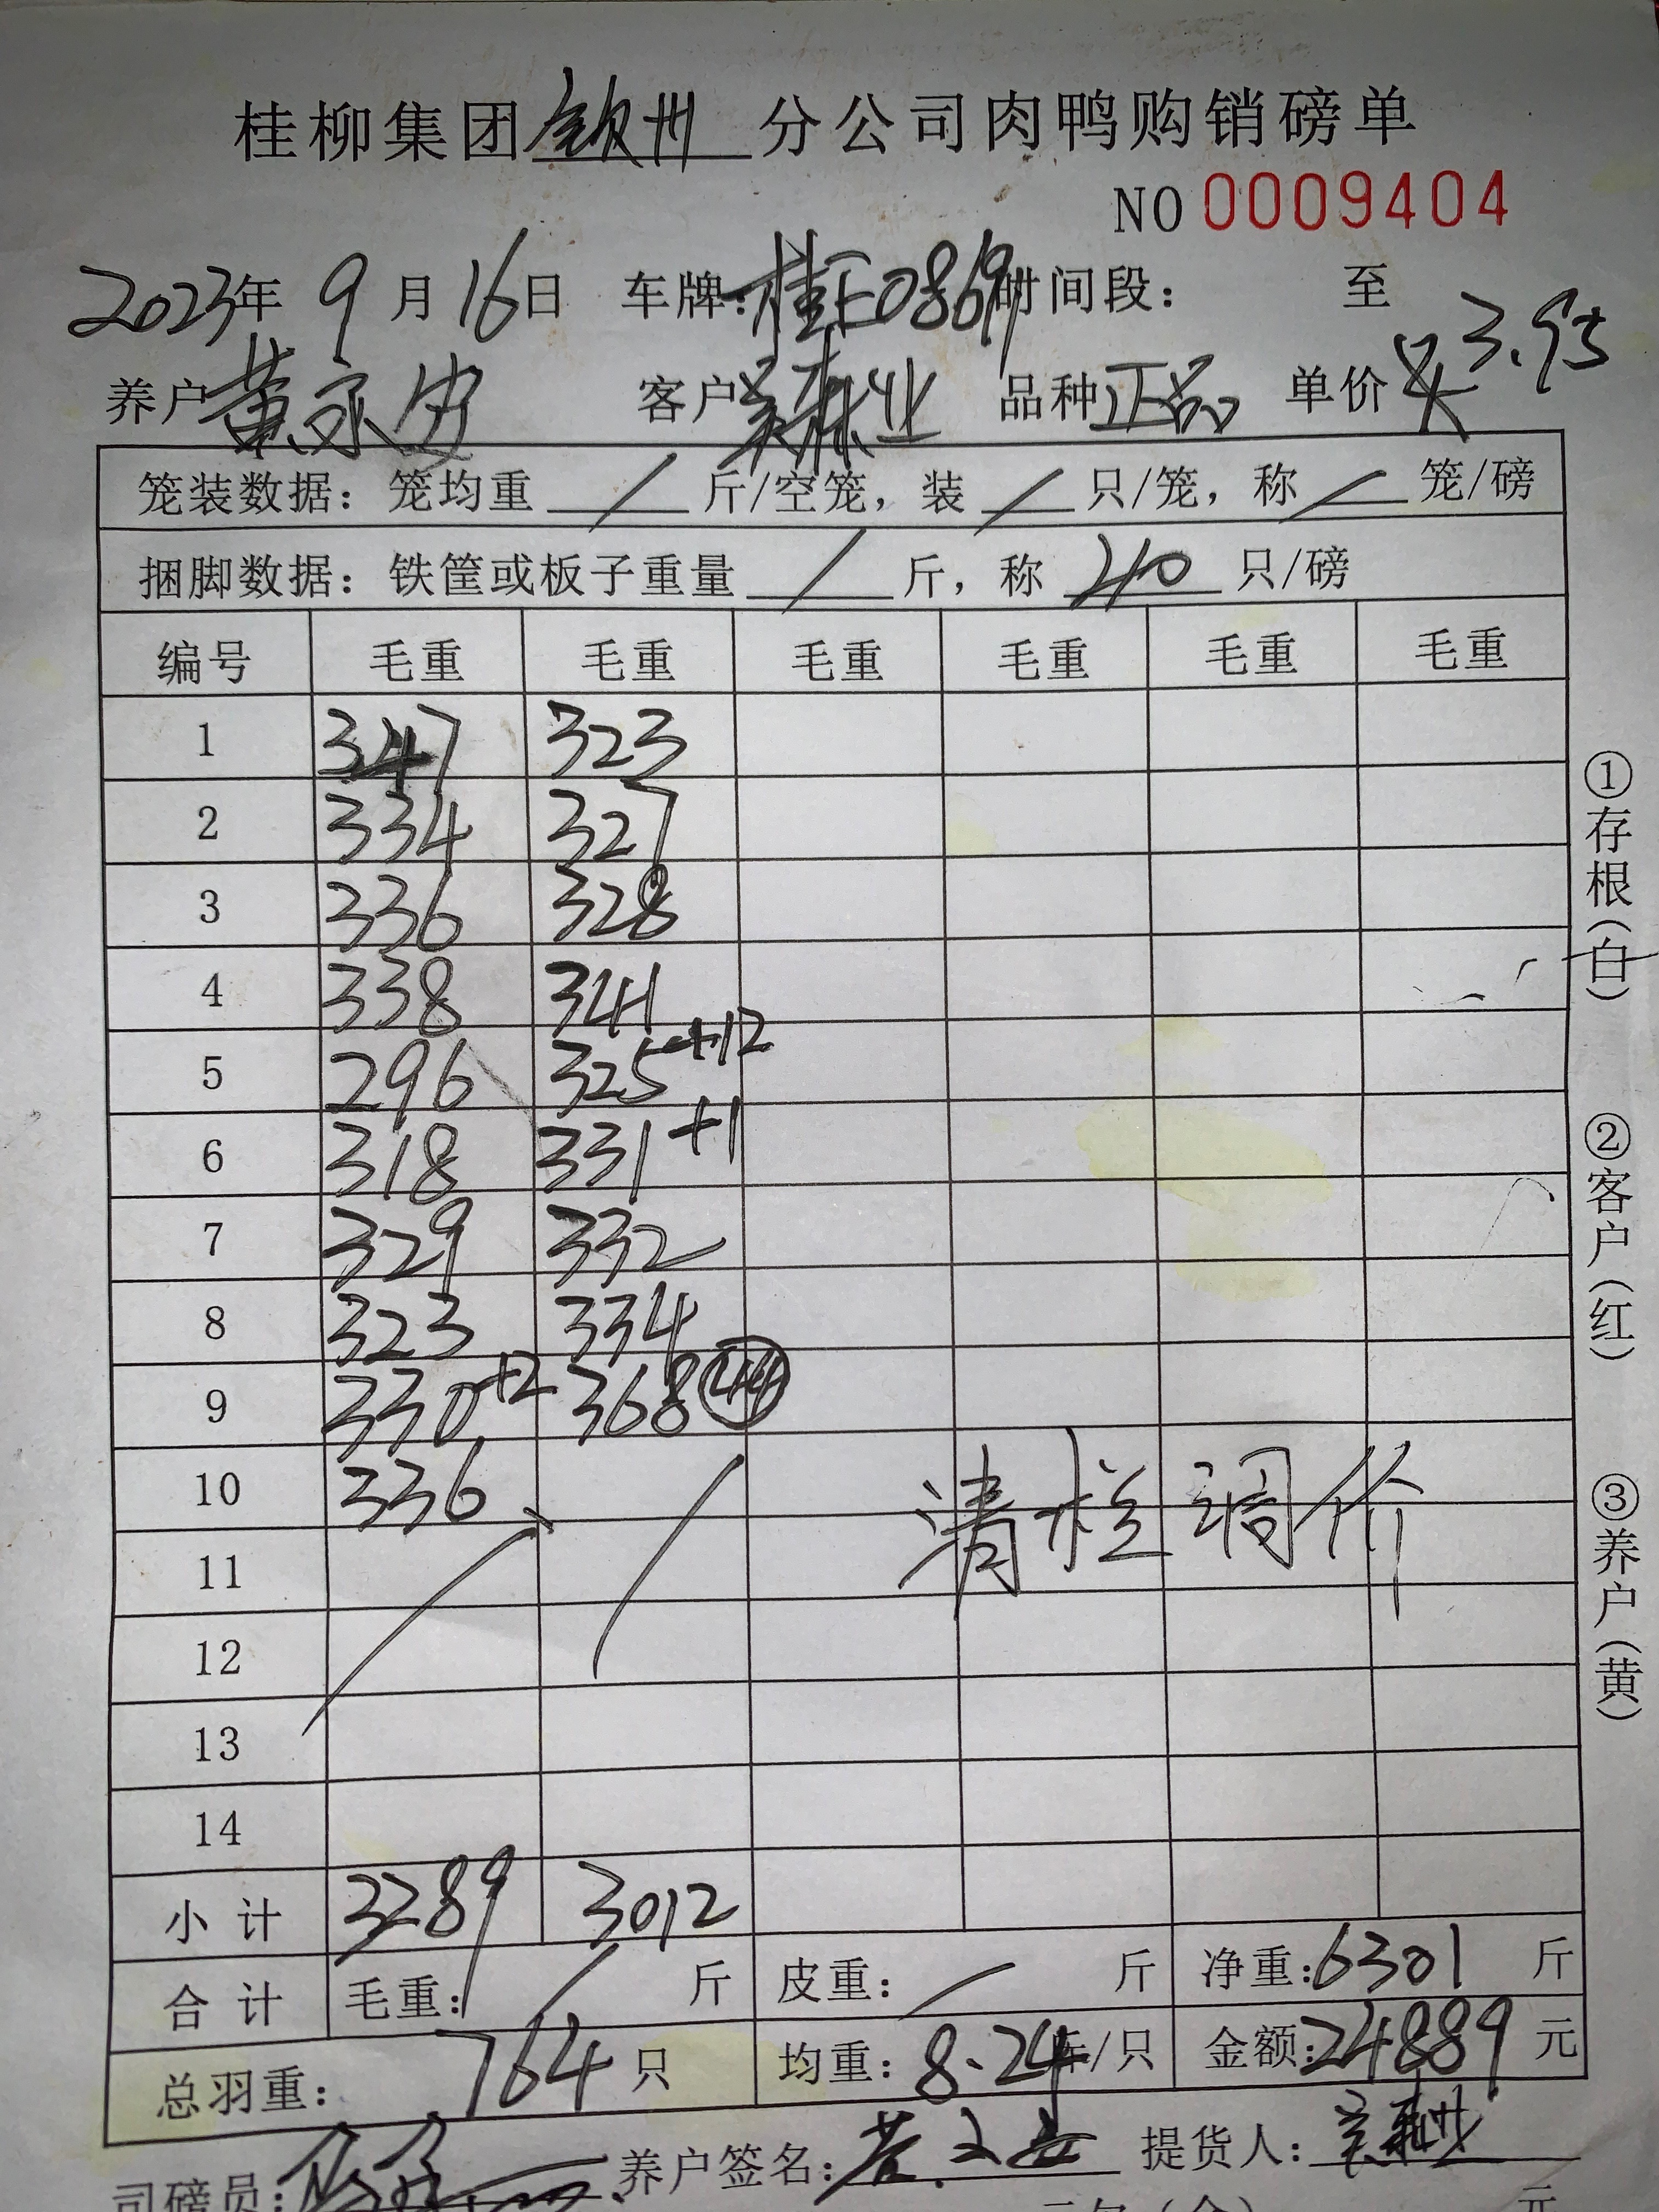 桂柳集团 钦州 分公司肉鸭购销磅单
NO 0009404
2023年 9月16日 车牌: 桂E0869 时间段: 至
养户 黄家 客户 吴 业 品种 正品 单价 3.95
笼装数据: 笼均重 / 斤/空笼, 装 / 只/笼, 称 / 笼/磅
捆脚数据: 铁筐或板子重量 / 斤, 称 40 只/磅
编号 毛重 毛重 毛重 毛重 毛重 毛重
1 347 323
2 334 327
3 336 328
4 338 341
5 296 325 +12
6 318 331 +1
7 329 332
8 323 334
9 330 +2 368 44
10 336 清栏调价
11
12
13
14
小计 3289 3012
合计 毛重: / 斤 皮重: / 斤 净重: 6301 斤
总羽重: 764 只 均重: 8.24 斤/只 金额: 24889 元
司磅员: 养户签名: 黄 提货人: 吴 业
①存根(白)
②客户(红)
③养户(黄)